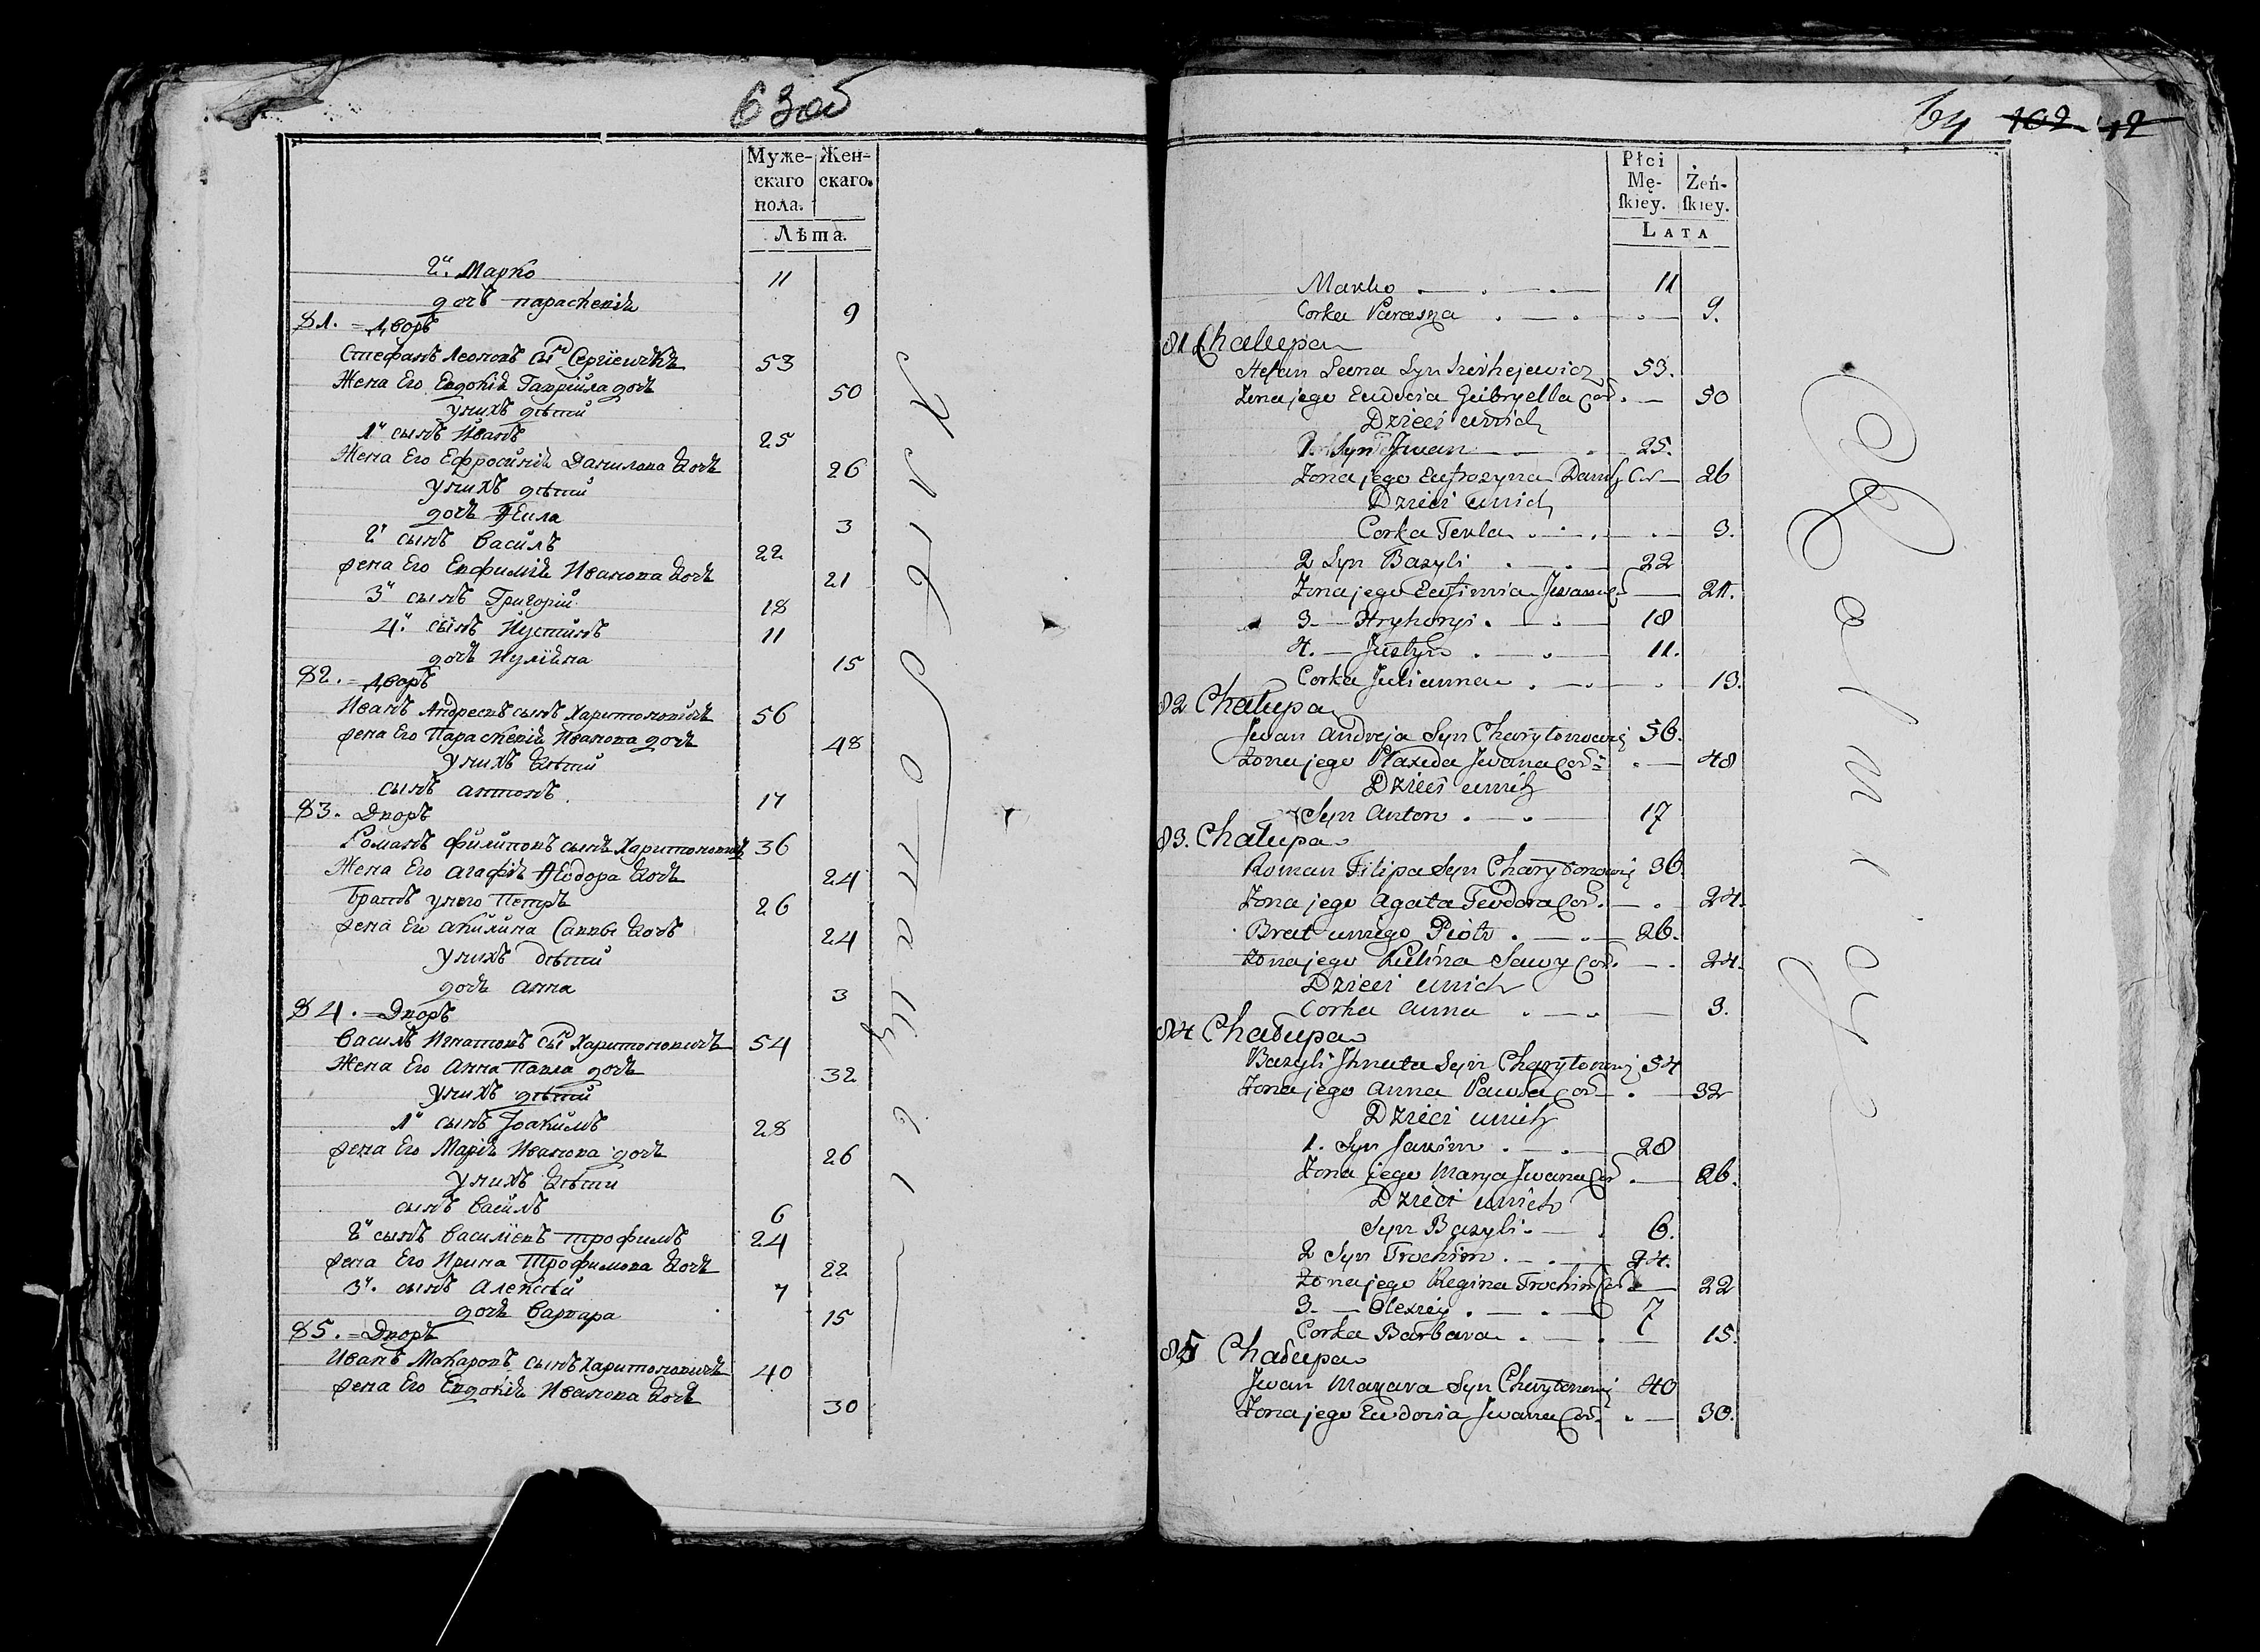 63 об
Муже- Жен-
скаго скаго.
пола.
Лѣта.
2й Марко 11
дочь параскевія 9
81. = Дворъ
Стефанъ Леоновъ сынъ Сергіевичъ 53
Жена Его Евдокія Гавріила дочь 50
у нихъ дѣти
1й сынъ Иванъ 25
Жена Его Ефросинія Данилова дочь 26
у нихъ дѣти
дочь Ѳекла 3
2й сынъ Василь 22
жена Его Евфимія Иванова дочь 21
3й сынъ Григорій 18
4й сынъ Иустинъ 11
дочь Иуліяна 15
82. = Дворъ
Иванъ Андреевъ сынъ Харитоновичъ 56
жена Его Параскевія Иванова дочь 48
у нихъ дѣти
сынъ антонъ 17
83. Дворъ
Романъ филиповъ сынъ Харитоновичъ 36
Жена Его агафія Ѳеодора дочь 24
братъ у него Петръ 26
жена Его акилина Саввы дочь 24
у нихъ дѣти
дочь анна 3
84. = Дворъ
Василь Игнатовъ сынъ Харитоновичъ 54
Жена Его Анна Павла дочь 32
у нихъ дѣти
1й сынъ Іоакимъ 28
жена Его Марія Иванова дочь 26
у нихъ дѣти
сынъ Василь 6
2й сынъ Василіевъ трофимъ 24
жена Его Ирина Трофимова дочь 22
3й. сынъ Алексѣй 7
дочь Варвара 15
85. = Дворъ
Иванъ Макаровъ сынъ Харитоновичъ 40
жена Его Евдокія Иванова дочь 30
64 102 12
Płci
Mę- Żeń-
ſkiey. ſkiey.
LATA
Marko 11
Corka Paraska 9.
81 Chałupa
Stefan Leona Syn Serhejewicz 53.
Żona jego Eudocia Gabryella Cor. 50
Dzieci u nich
1. Syn Jwan 25.
Żona jego Eufrozyna Daniły Cor 26
Dzieci u nich
Corka Tekla 3.
2 Syn Bazyli 22
Żona jego Eufimia Jwana Cor 21.
3 — Hryhory 18
4. — Justyn 11.
Corka Julianna 13.
82 Chałupa
Jwan Andreja Syn Charytonowicz 56.
Żona jego Praxeda Jwana Cor 48
Dzieci u nich
Syn Anton 17
83. Chałupa
Roman Filipa Syn Charytonowicz 36.
Żona jego Agata Teodora Cor. 24.
Brat u niego Piotr 26.
Żona jego Kulina Sawy Cor. 24.
Dzieci u nich
Corka Anna 3.
84 Chałupa
Bazyli Jhnata Syn Charytonowicz 54
Żona jego Anna Pawła Cor 32
Dzieci u nich
1. Syn Jakim 28
Żona jego Marya Jwana Cor 26.
Dzieci u nich
Syn Bazyli 6.
2 Syn Trochim 24.
Żona jego Regina Trochim Cor 22
3. — Olexiey 7
Corka Barbara 15.
85 Chałupa
Jwan Makara Syn Charytonowicz 40
Żona jego Eudocia Jwana Cor. 30.